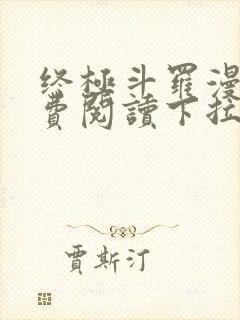 终極斗羅漫
費閱讀下拉
賈斯汀